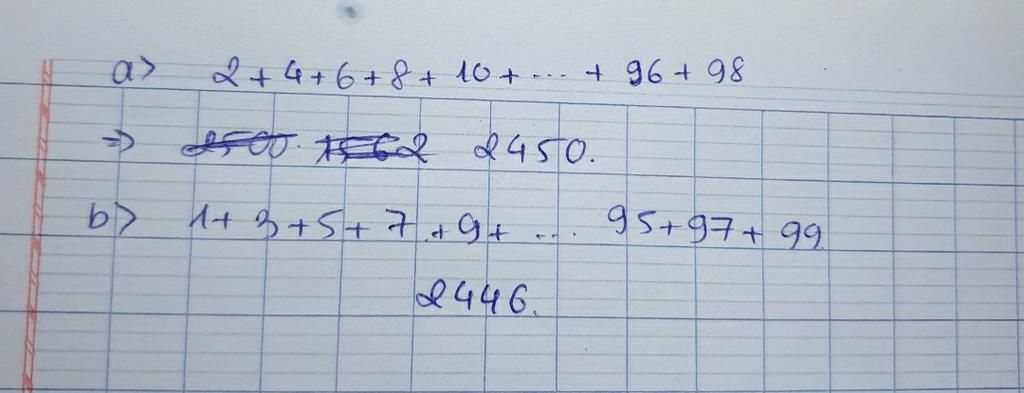 a> 2+4+6+8+10+...+96+98
=> 2500. 1562 2450.
b> 1+3+5+7+9+... 95+97+99
2446.